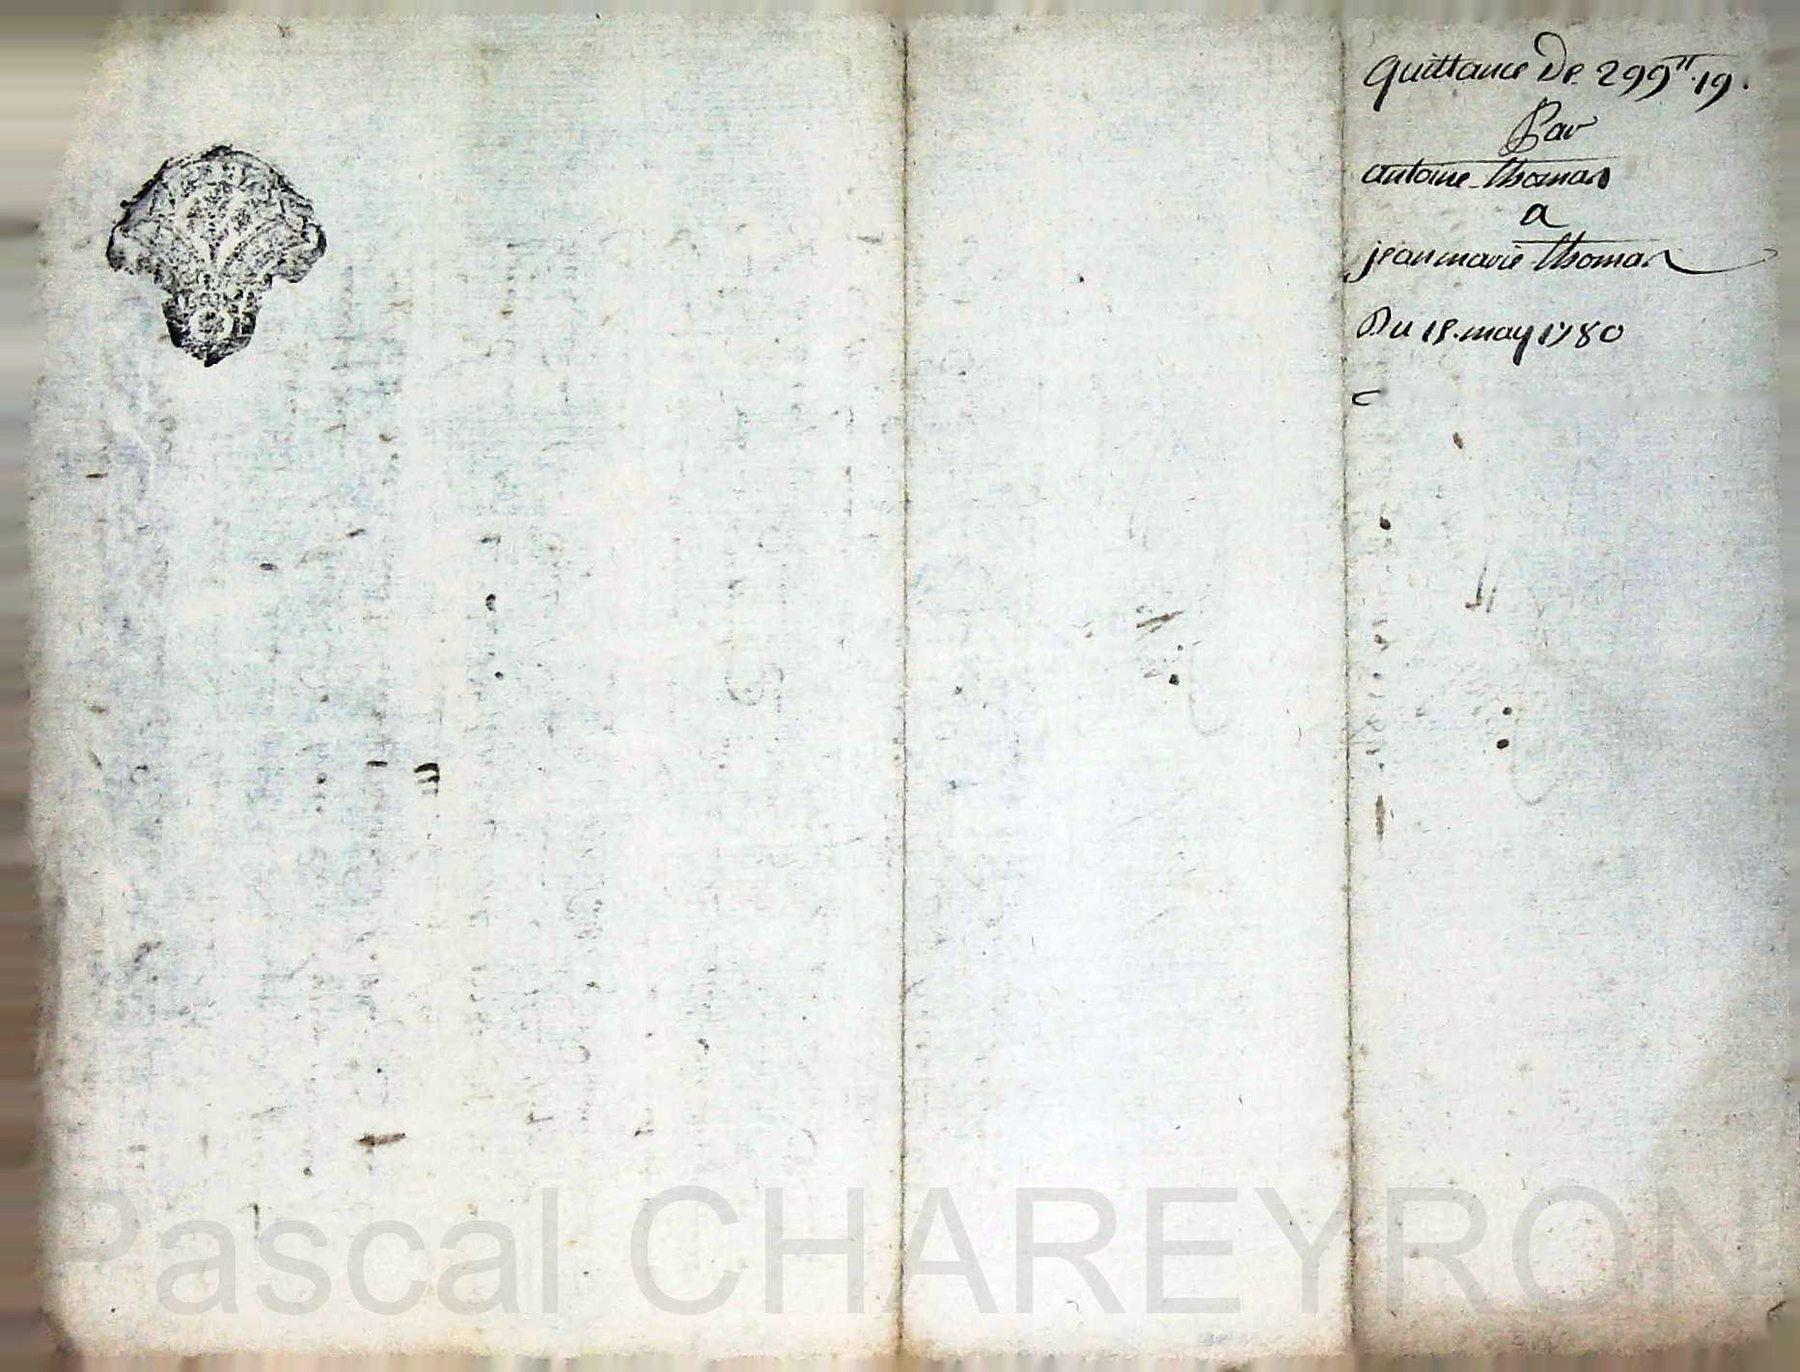 Quittance De 299" 19.
Par
antoine thomas
a
jean marie thomas
Du 15. may 1780
Pascal CHAREYRON